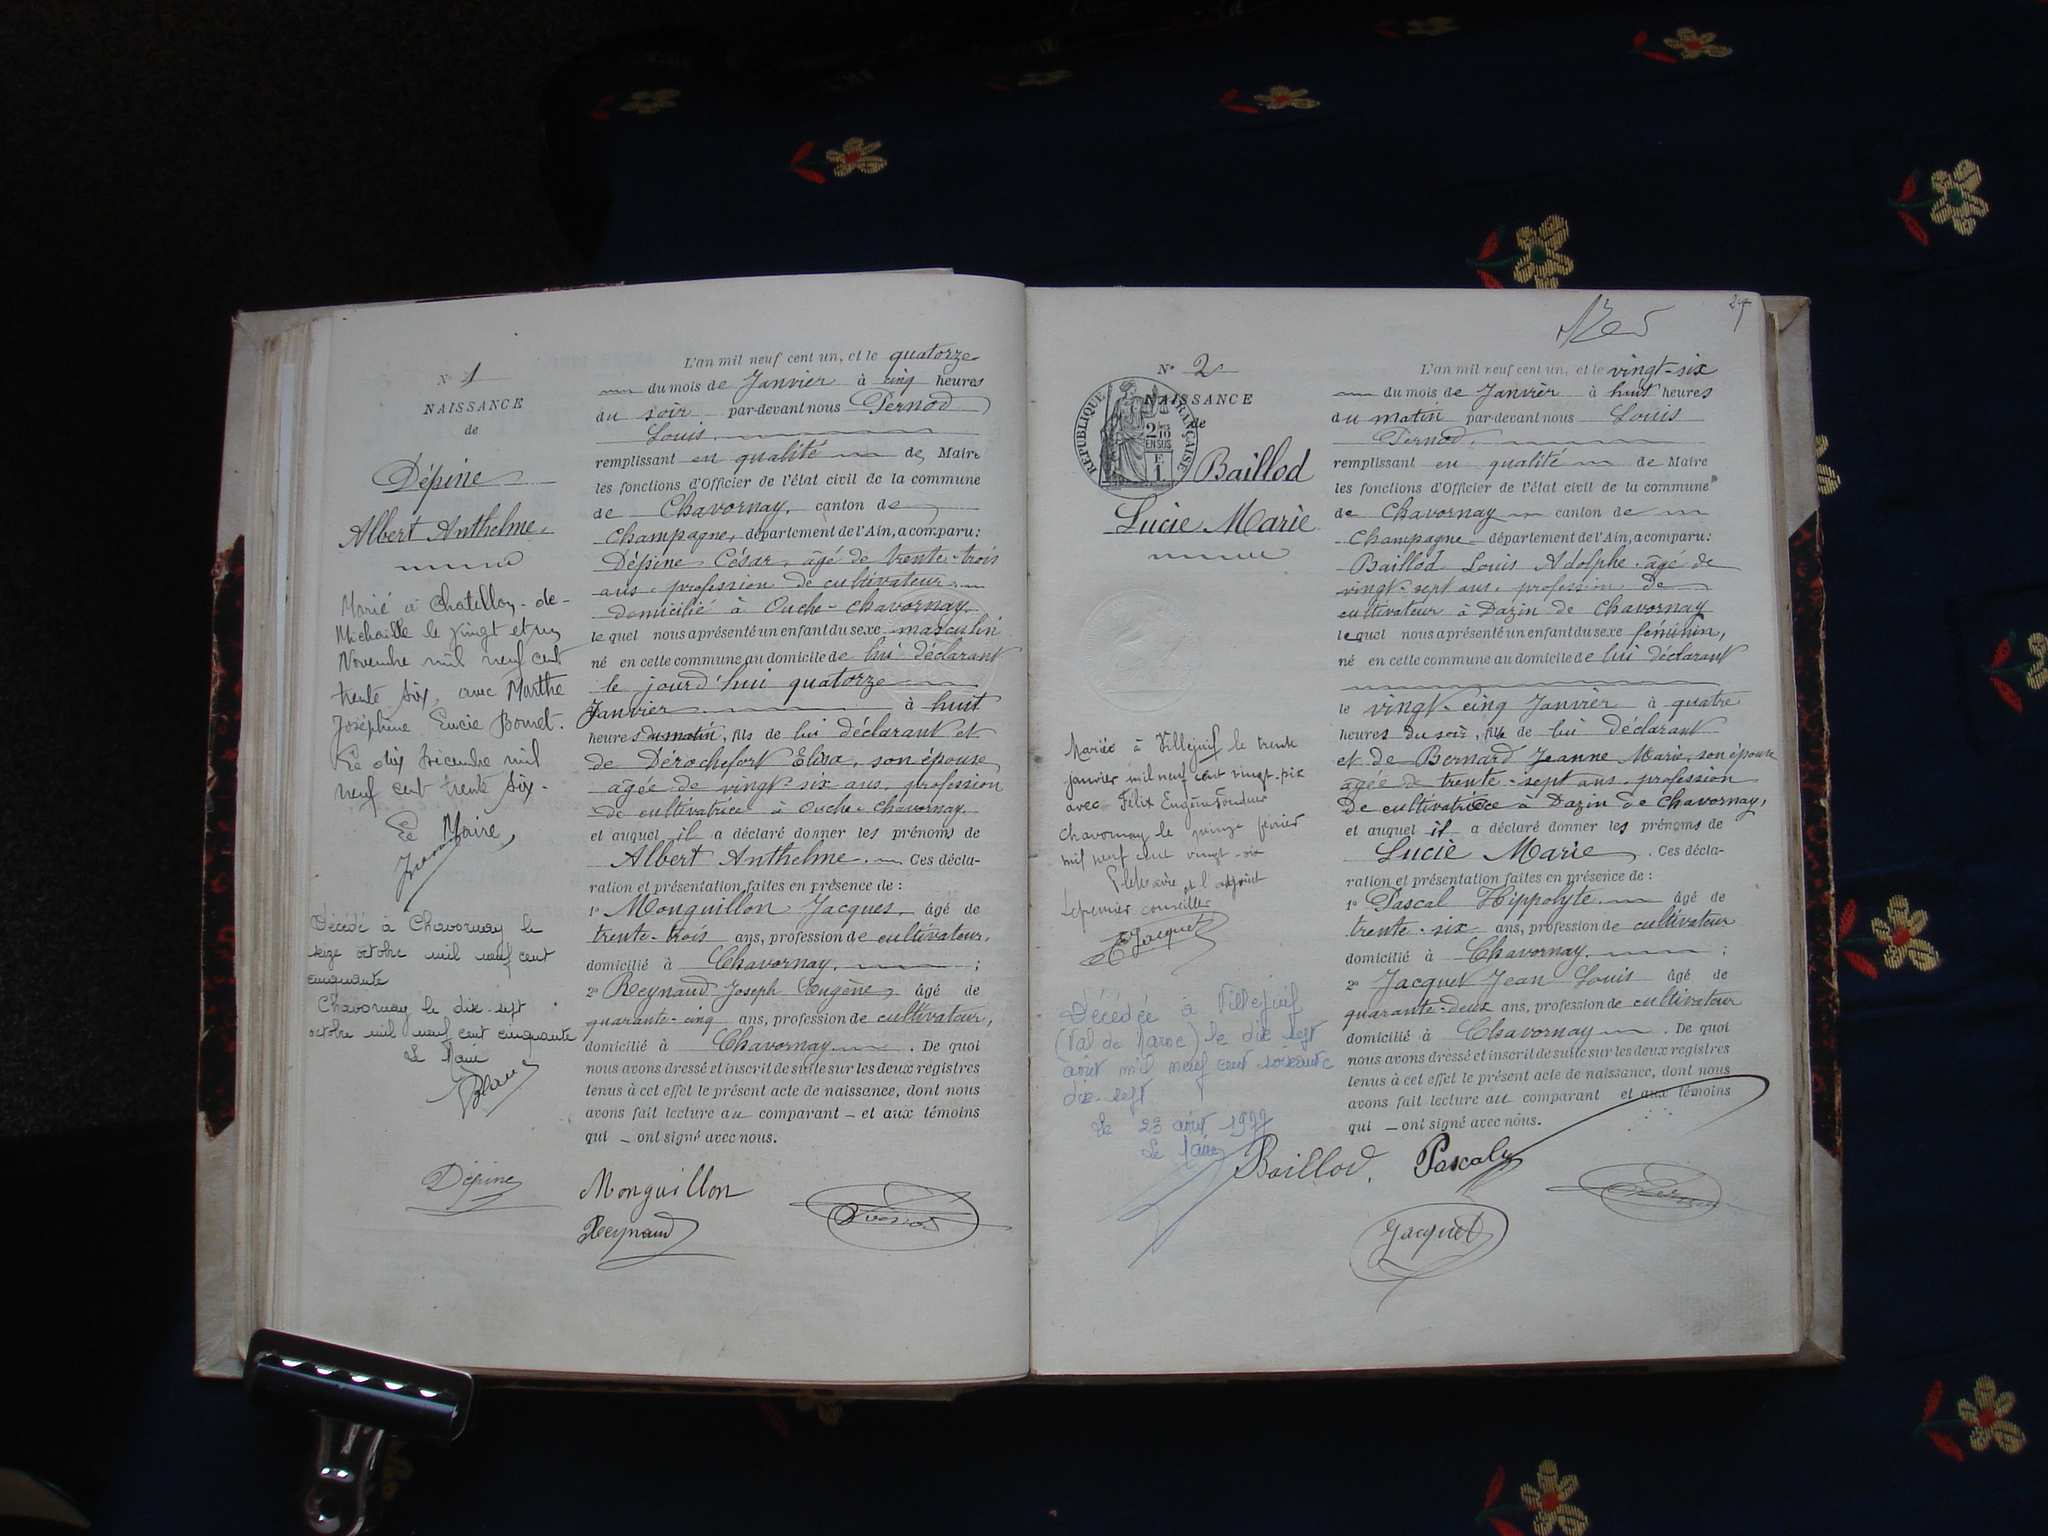 N° 1
NAISSANCE
de
Dépine
Albert Anthelme
Marié à Chatillon-de-
Michaille le vingt et un
Novembre mil neuf cent
trente six, avec Marthe
Joséphine Lucie Bornet.
Le dix Décembre mil
neuf cent trente six.
Le Maire,
Décédé à Chavornay le
seize octobre mil neuf cent
cinquante
Chavornay le dix-sept
octobre mil neuf cent cinquante
Le Maire
L'an mil neuf cent un, et le quatorze
du mois de Janvier à cinq heures
du soir par-devant nous Pernod
Louis
remplissant en qualité de Maire
les fonctions d'Officier de l'état civil de la commune
de Chavornay, canton de
Champagne, département de l'Ain, a comparu:
Dépine César, âgé de trente-trois
ans, profession de cultivateur
domicilié à Ouche-Chavornay
lequel nous a présenté un enfant du sexe masculin
né en cette commune au domicile de lui déclarant
le jourd'hui quatorze
Janvier à huit
heures du matin, fils de lui déclarant et
de Dérochefort Elisa, son épouse,
âgée de vingt-six ans, profession
de cultivatrice à Ouche-Chavornay
et auquel il a déclaré donner les prénoms de
Albert Anthelme. Ces décla-
ration et présentation faites en présence de :
1° Monguillon Jacques, âgé de
trente-trois ans, profession de cultivateur,
domicilié à Chavornay, ;
2° Reynaud Joseph Eugène, âgé de
quarante-cinq ans, profession de cultivateur,
domicilié à Chavornay. De quoi
nous avons dressé et inscrit de suite sur les deux registres
tenus à cet effet le présent acte de naissance, dont nous
avons fait lecture au comparant - et aux témoins
qui - ont signé avec nous.
Dépine Monguillon
Reynaud Pernod
27
N° 2
NAISSANCE
de
RÉPUBLIQUE FRANÇAISE
2/10
EN SUS
F
1
Baillod
Lucie Marie
Mariée à Villejuif le trente
janvier mil neuf cent vingt-six
avec Félix Eugène
Chavornay le quinze février
mil neuf cent vingt-six
P. le Maire et l'adjoint
Le premier conseiller
Jacquet
Décédée à Villejuif
(Val de Marne) le dix sept
août mil neuf cent soixante
dix-sept
Le 23 août 1977
Le Maire
L'an mil neuf cent un, et le vingt-six
du mois de Janvier à huit heures
du matin par-devant nous Louis
Pernod,
remplissant en qualité de Maire
les fonctions d'Officier de l'état civil de la commune
de Chavornay canton de
Champagne département de l'Ain, a comparu:
Baillod Louis Adolphe âgé de
vingt-sept ans, profession de
cultivateur à Dazin de Chavornay
lequel nous a présenté un enfant du sexe féminin,
né en cette commune au domicile de lui déclarant
le vingt-cinq Janvier à quatre
heures du soir, fille de lui déclarant
et de Bernard Jeanne Marie, son épouse
âgée de trente-sept ans, profession
de cultivatrice à Dazin de Chavornay,
et auquel il a déclaré donner les prénoms de
Lucie Marie. Ces décla-
ration et présentation faites en présence de :
1° Pascal Hippolyte, âgé de
trente-six ans, profession de cultivateur
domicilié à Chavornay ;
2° Jacquet Jean Louis âgé de
quarante-deux ans, profession de cultivateur
domicilié à Chavornay. De quoi
nous avons dressé et inscrit de suite sur les deux registres
tenus à cet effet le présent acte de naissance, dont nous
avons fait lecture au comparant et aux témoins
qui - ont signé avec nous.
Baillod, Pascal
Jacquet Pernod